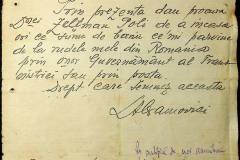 Prin prezenta dau procură
Dnei Zellman Poli de a încasa
ori ce sume de banie ce mi parvine
de la rudele mele din România
prin onor Guvernământ al Trans
nistriei sau prin posta
Drept care semnez aceasta
LAbramovici